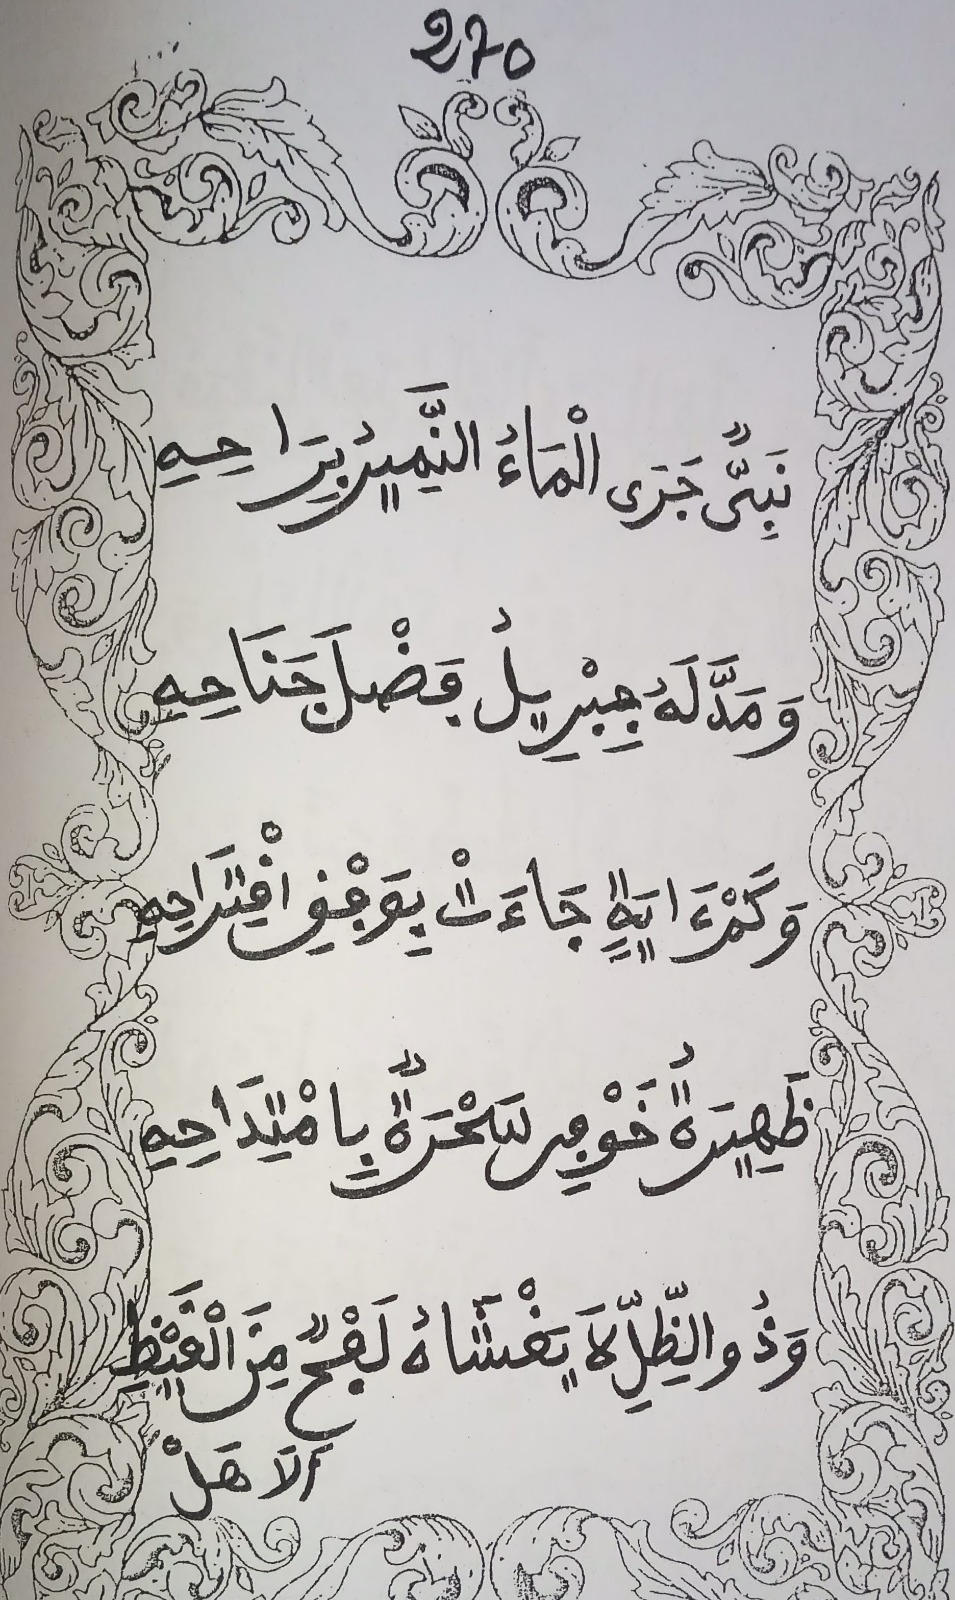 270
نَبِىٌّ جَرَى الْمَاءُ النَّمِيرُ بِرَاحِهِ
وَمَدَّ لَهُ جِبْرِيلُ فَضْلَ جَنَاحِهِ
وَكَمْ ءَايَةٍ جَاءَتْ بِوَفْقِ اقْتِرَاحِهِ
ظَهِيرَةُ خَوْفِى سَحْرَةٌ بِامْتِدَاحِهِ
وَذُو الظِّلِّ لَا يَغْشَاهُ لَفْحٌ مِنَ الْقَيْظِ
أَلَا هَلْ